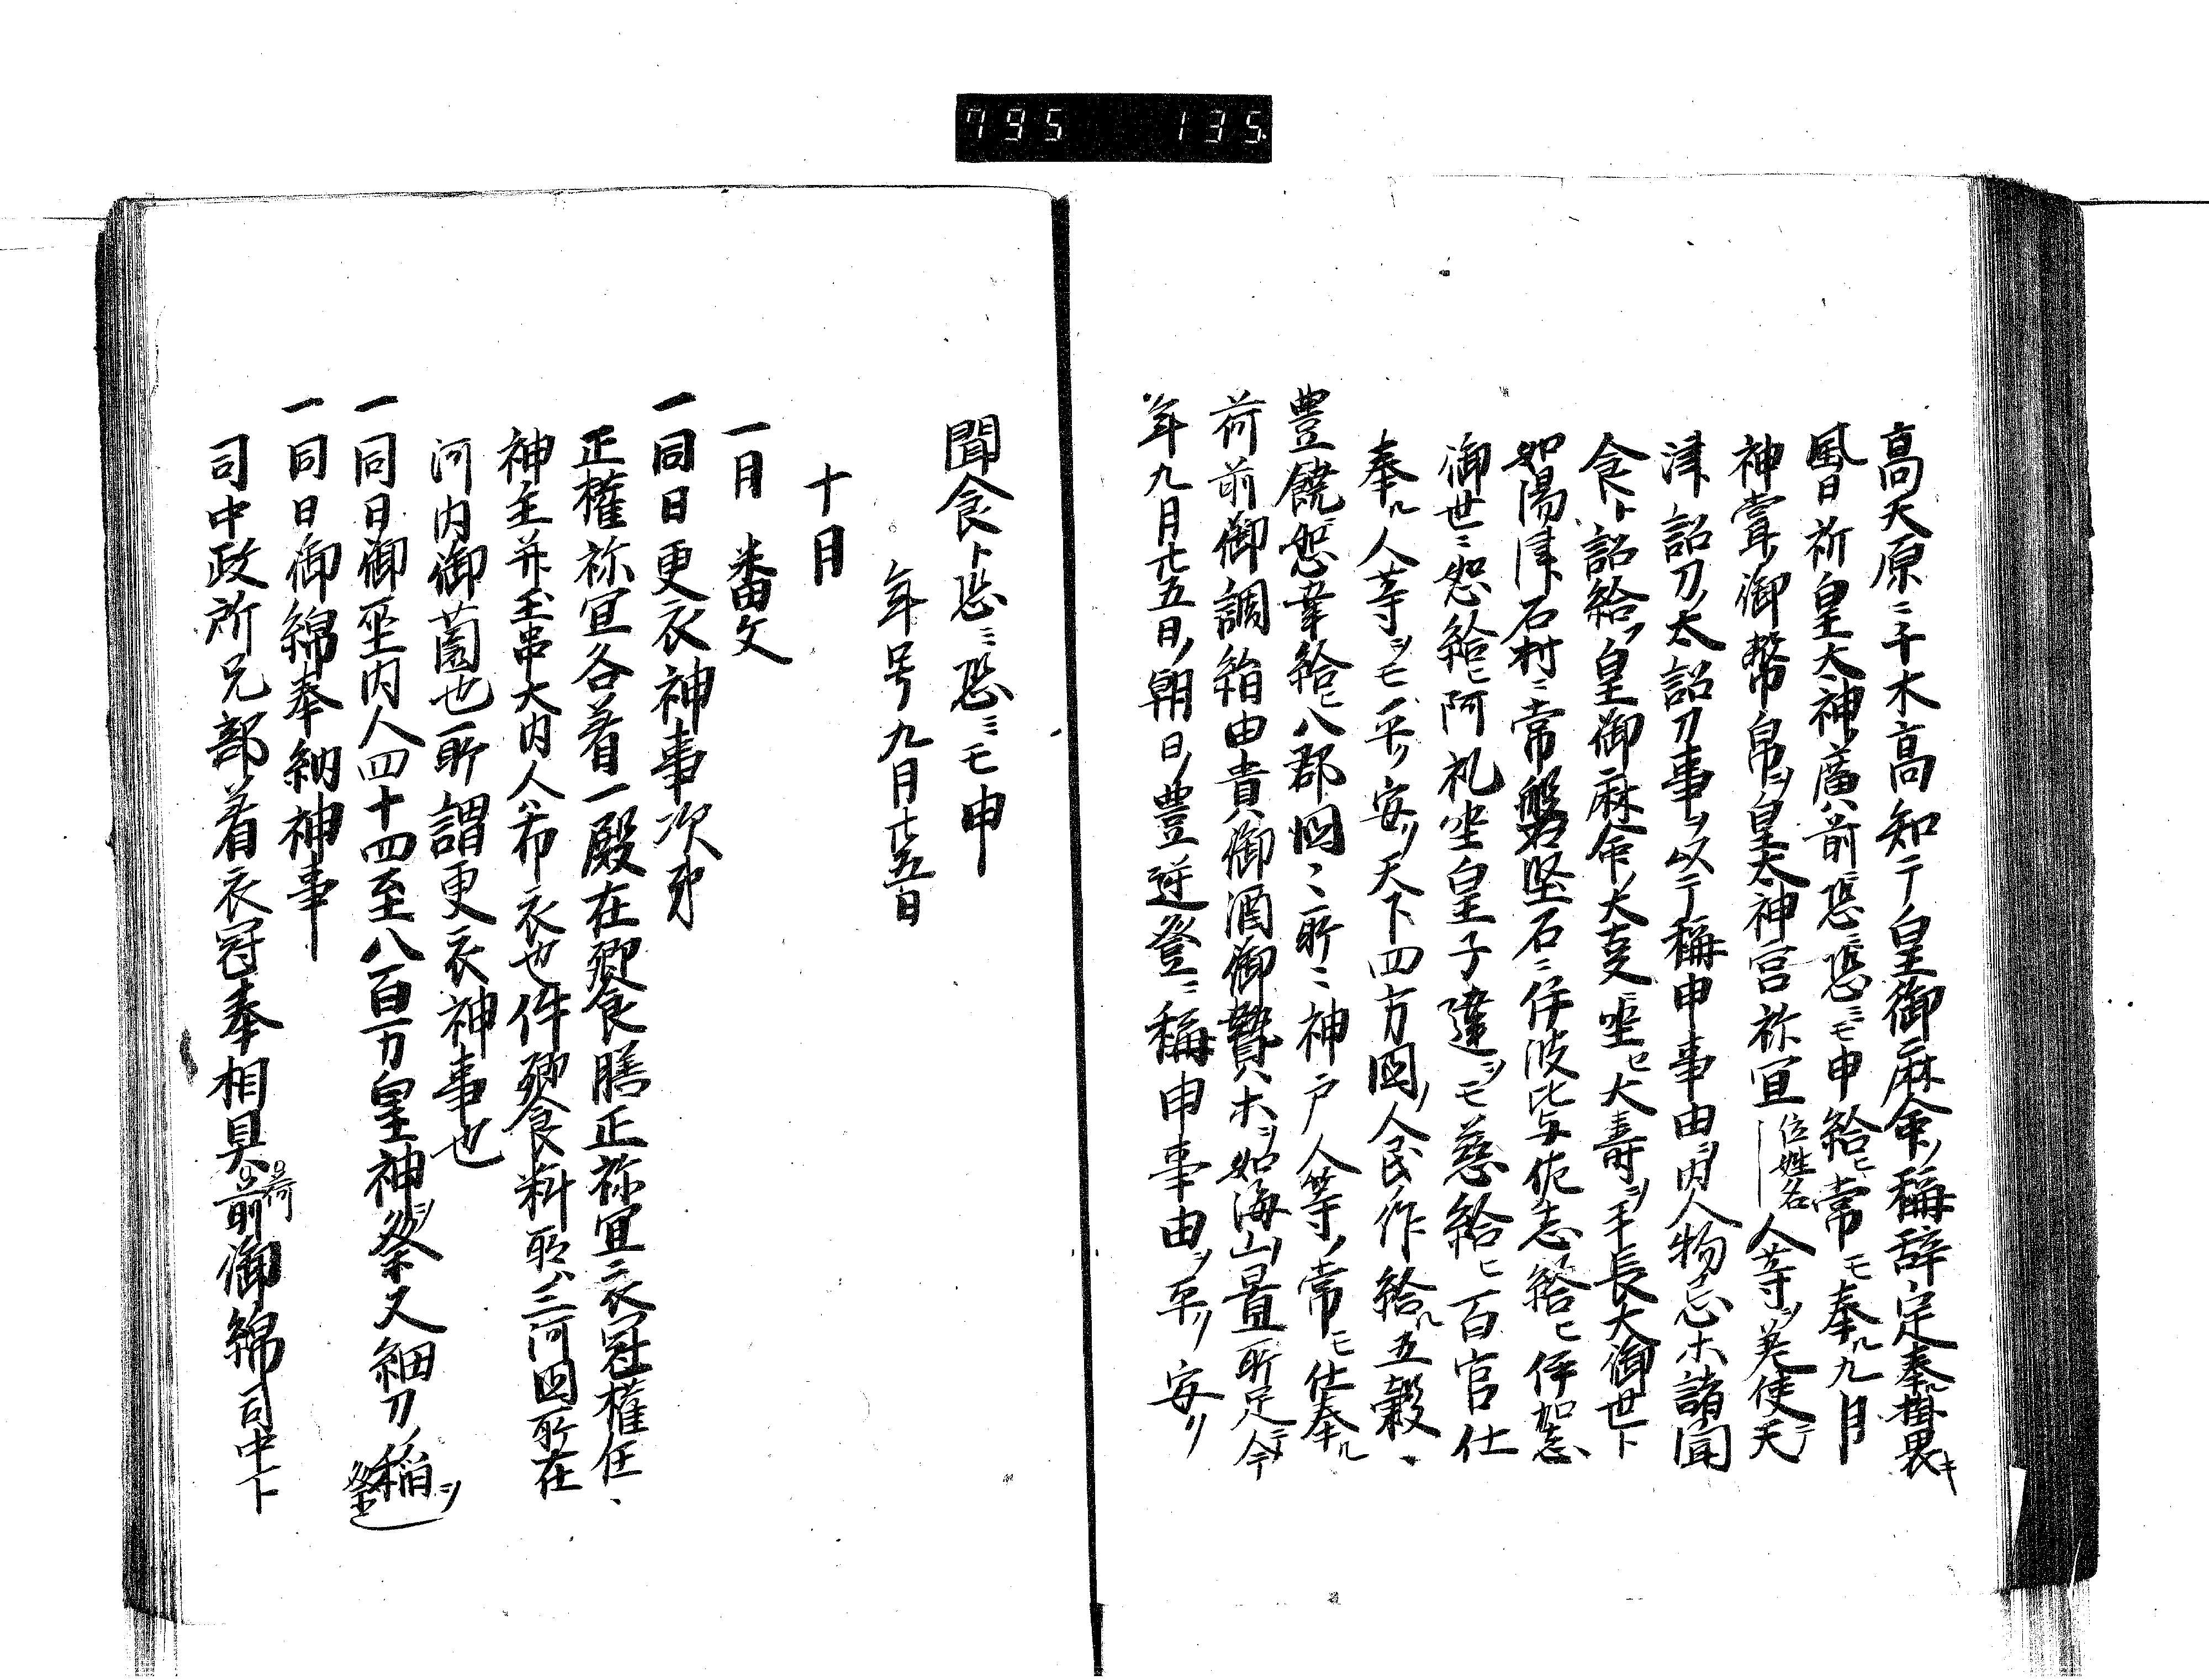 795 135
高天原ニ千木高知テ皇御麻命ノ稱辞定奉ル掛畏キ
風日祈皇太神ノ廣前ニ恐ミ恐ミモ申給ヒ常モ奉ル九月
神嘗ノ御幣帛ヲ皇太神宮祢宜位姓名人等ヲ差使天
津詔刀ノ太詔刀事ヲ以テ稱申事由ヲ内人物忌ホ諸聞
食ト詔給フ皇御麻命ノ大坐ニ大壽ヲ手長大御世ト
如湯津石村ニ常磐堅石ニ伊波比与佐志給ヒ伊加志
御世ニ給ヒ阿礼坐皇子達ヲモ慈給ヒ百官仕
奉ル人等ヲモ平ク安ク天下四方国ノ人民作給ル五穀
豊饒給ヒ八郡国ニ所ニ神戸人等ノ常モ仕奉ル
荷前御調絹由貴ノ御酒御贄ホヲ如海山置所足今
年九月十五日ノ朝日ノ豊逆登ニ稱申事由ヲ平ク安ク
聞食ト恐ミ恐ミモ申
年号九月十五日
十月
一月番文
一同日更衣神事次第
正權祢宜各着一殿在饗膳正祢宜衣冠權任
神主并玉串大内人布衣也件饗料所三河国所在
河内御薗也所謂更衣神事也
一同日御巫内人四十四至八百万皇神ヲ祭又細刀ノ稲ヲ祭
一同日御綿奉納神事
司中政所兄部着衣冠奉相具荷前御綿司中下